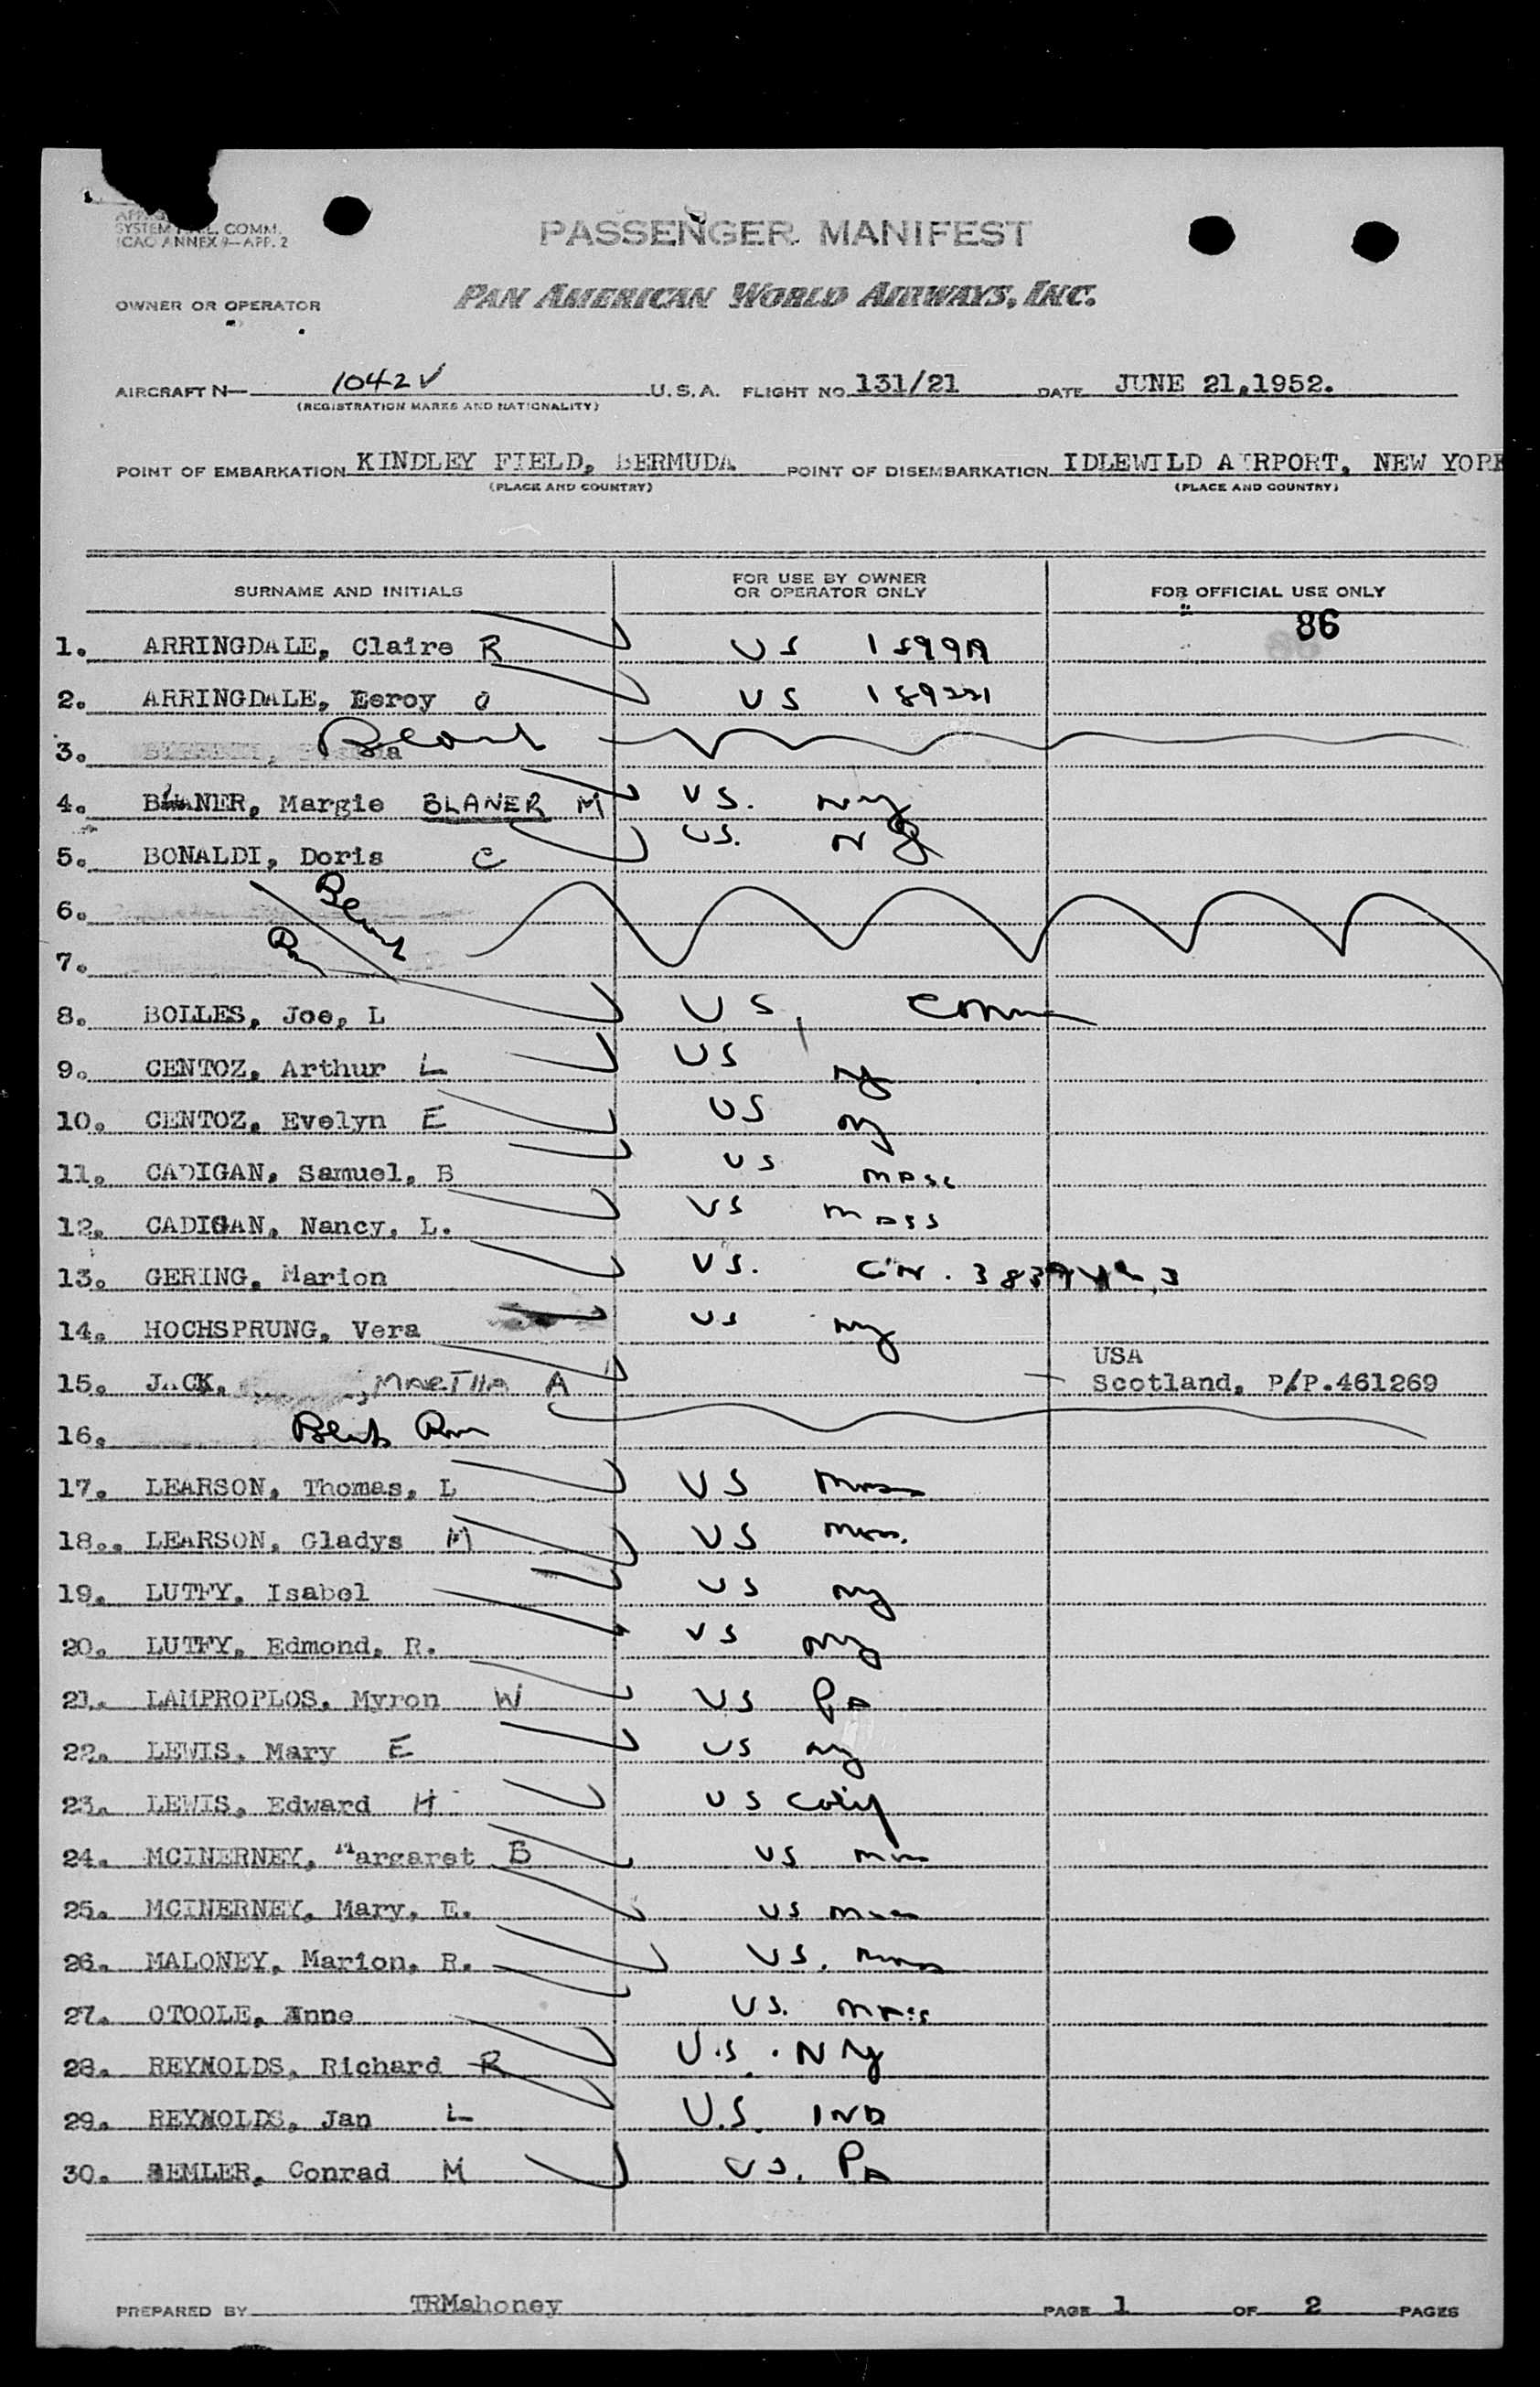 SYSTEM COMM.
ICAO ANNEX 9—APP. 2
PASSENGER MANIFEST
OWNER OR OPERATOR
PAN AMERICAN WORLD AIRWAYS, INC.
AIRCRAFT N— 1042V U.S.A. FLIGHT NO. 131/21 DATE JUNE 21,1952.
(REGISTRATION MARKS AND NATIONALITY)
POINT OF EMBARKATION KINDLEY FIELD, BERMUDA POINT OF DISEMBARKATION IDLEWILD AIRPORT, NEW YORK
(PLACE AND COUNTRY) (PLACE AND COUNTRY)
SURNAME AND INITIALS FOR USE BY OWNER OR OPERATOR ONLY FOR OFFICIAL USE ONLY
86
1. ARRINGDALE, Claire R US
2. ARRINGDALE, Eeroy O US
3.
4. BLANER, Margie BLANER M US. NY
5. BONALDI, Doris C US. NY
6.
7.
8. BOLLES, Joe, L US, Conn
9. CENTOZ, Arthur L US NY
10. CENTOZ, Evelyn E US NY
11. CADIGAN, Samuel, B US MASS
12. CADIGAN, Nancy, L. US MASS
13. GERING, Marion US. CN.
14. HOCHSPRUNG, Vera US NY
USA
15. JACK, MARTHA A Scotland, P/P.461269
16.
17. LEARSON, Thomas, L US Mass
18. LEARSON, Gladys M US Mass.
19. LUTFY, Isabel US NY
20. LUTFY, Edmond, R. US NY
21. LAMPROPLOS, Myron W US PA
22. LEWIS, Mary E US NY
23. LEWIS, Edward H US Calif
24. MCINERNEY, Margaret B US Mass
25. MCINERNEY, Mary, E. US Mass
26. MALONEY, Marion, R. US. Mass
27. OTOOLE, Anne US. MASS
28. REYNOLDS, Richard R U.S. NY
29. REYNOLDS, Jan L U.S. IND
30. SEMLER, Conrad M US. PA
PREPARED BY TRMahoney PAGE 1 OF 2 PAGES